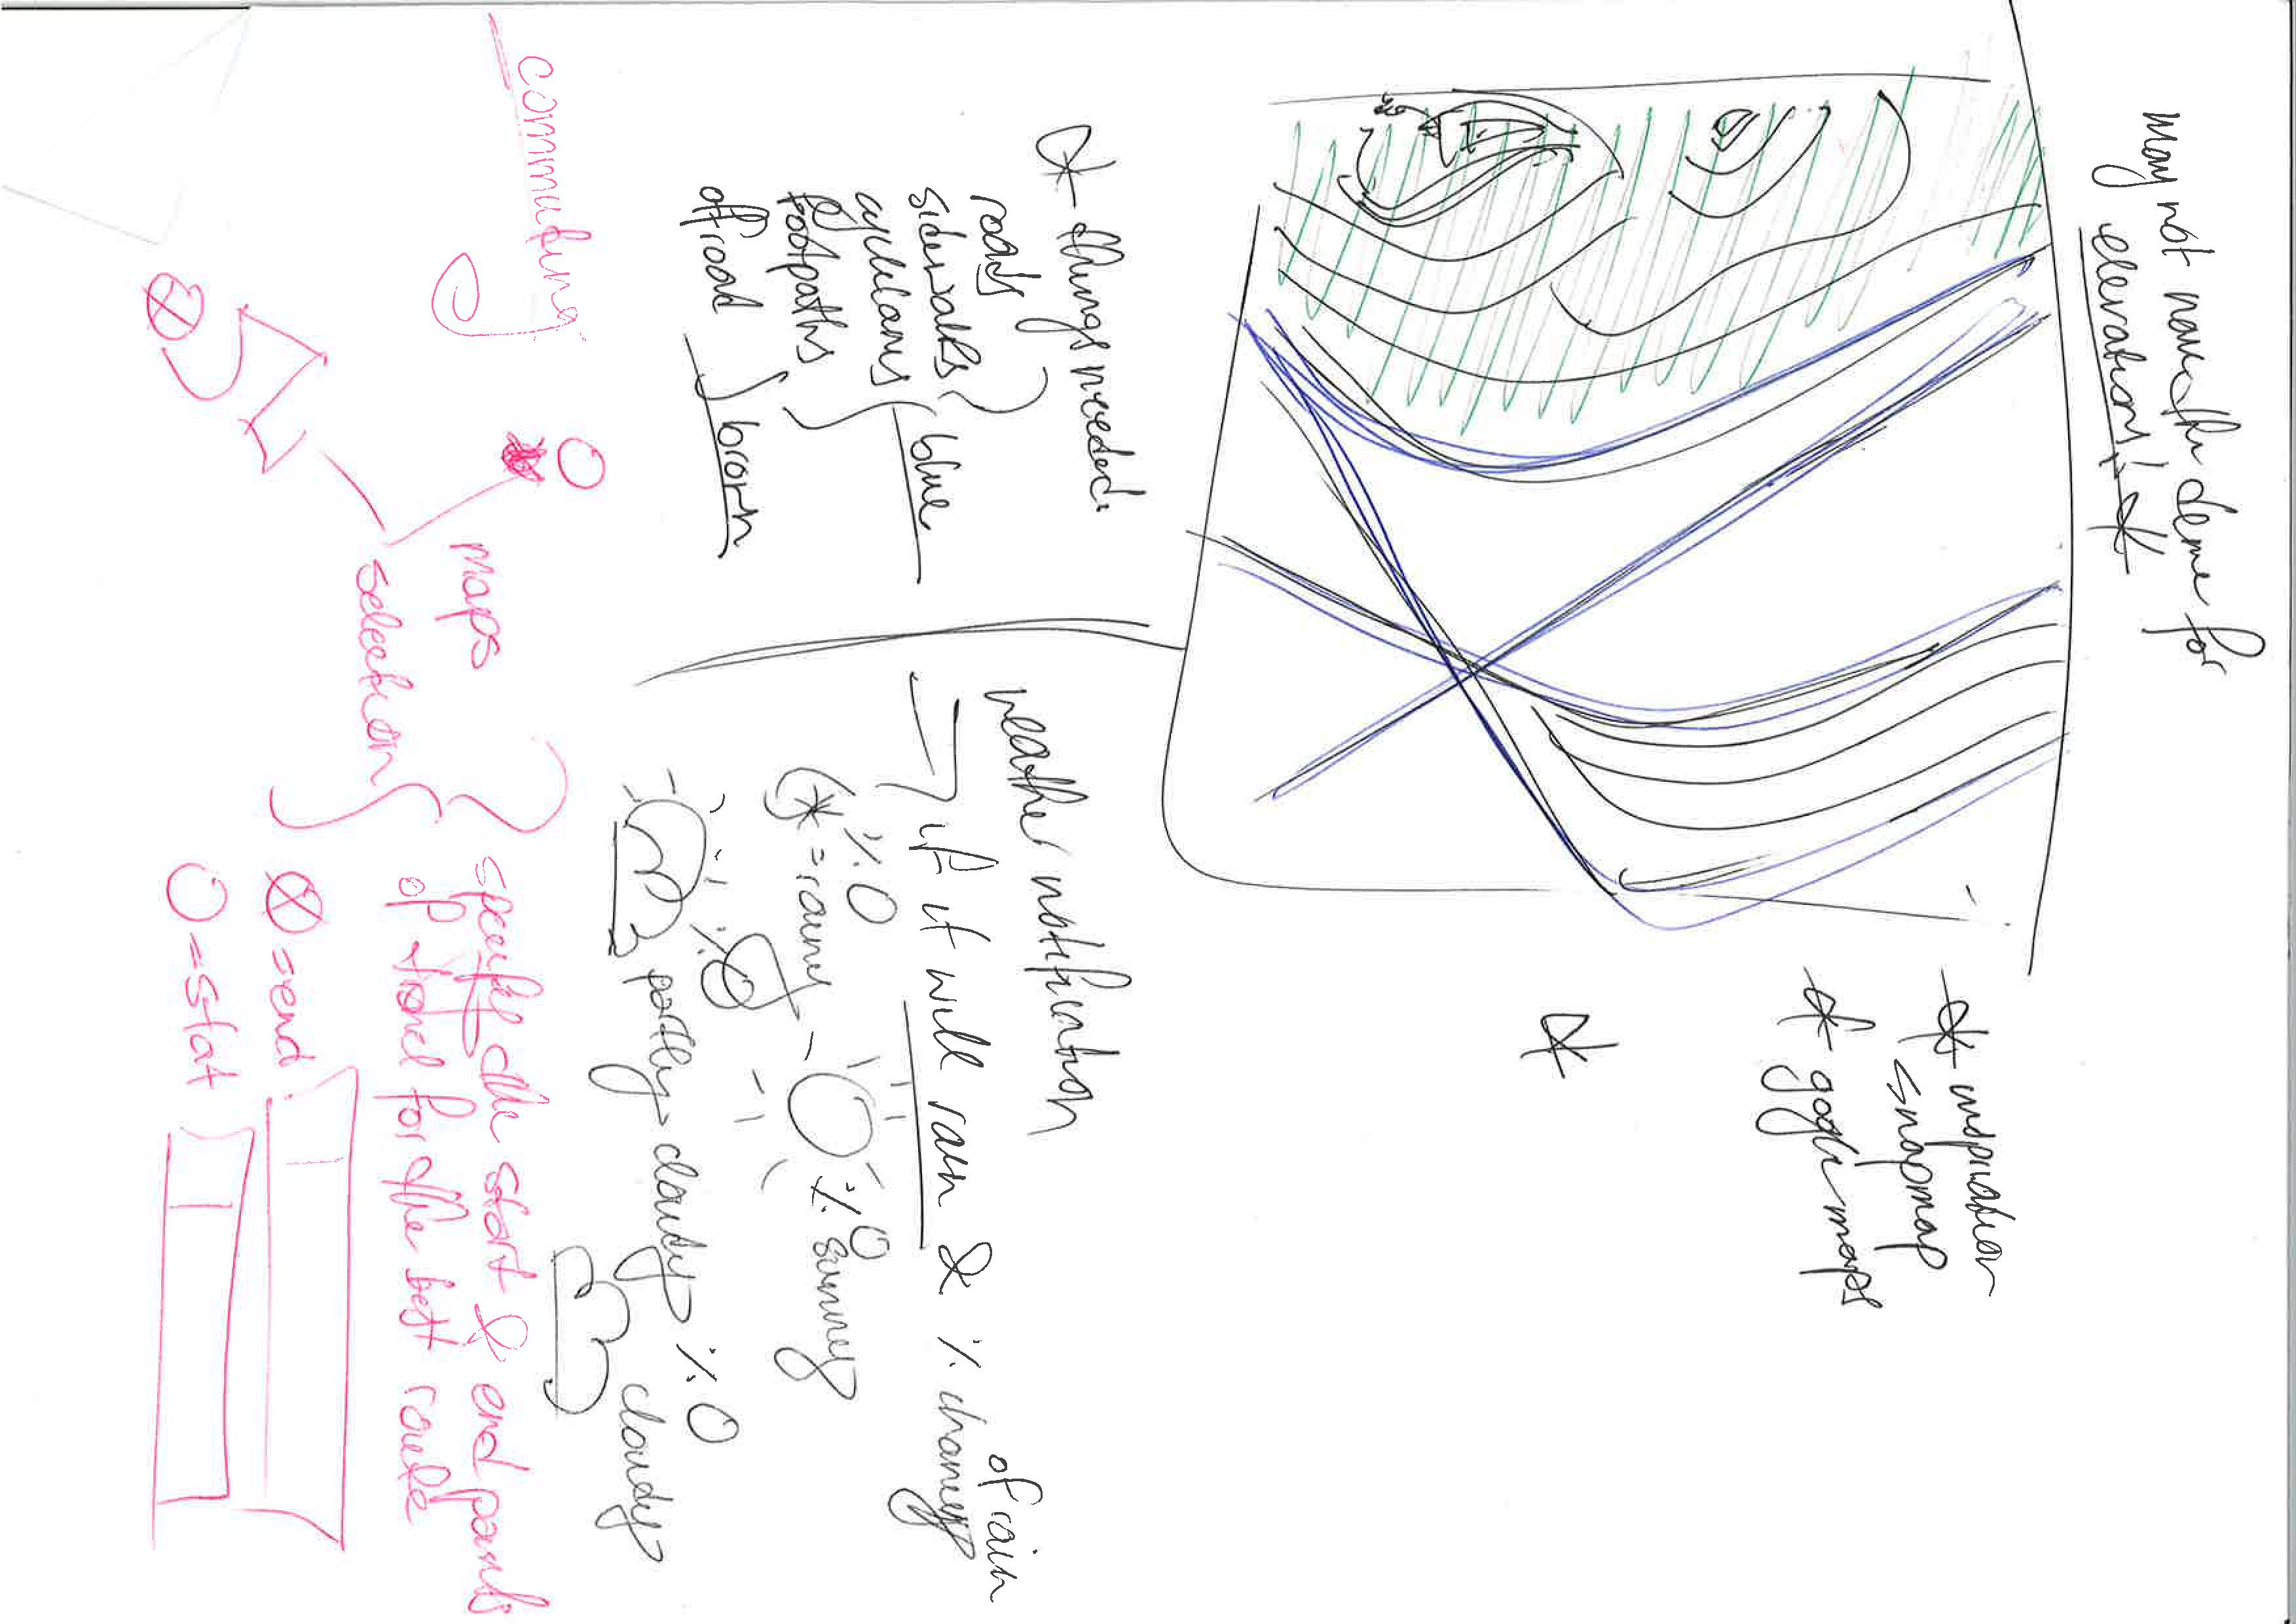 may not have the deme for
elevation! *
* inspiration
snapmap
* google maps
*
* things needed.
roads
sidewalks
cyclelanes
footpaths
offroad
blue
brown
weather notification
if it will rain & % chance
of rain
% O
* = rainy
% O
sunny
% O
partly cloudy % O
cloudy
commuting
maps
selection
specific the start & end points
of travel for the best route
⊗ = end
O = start